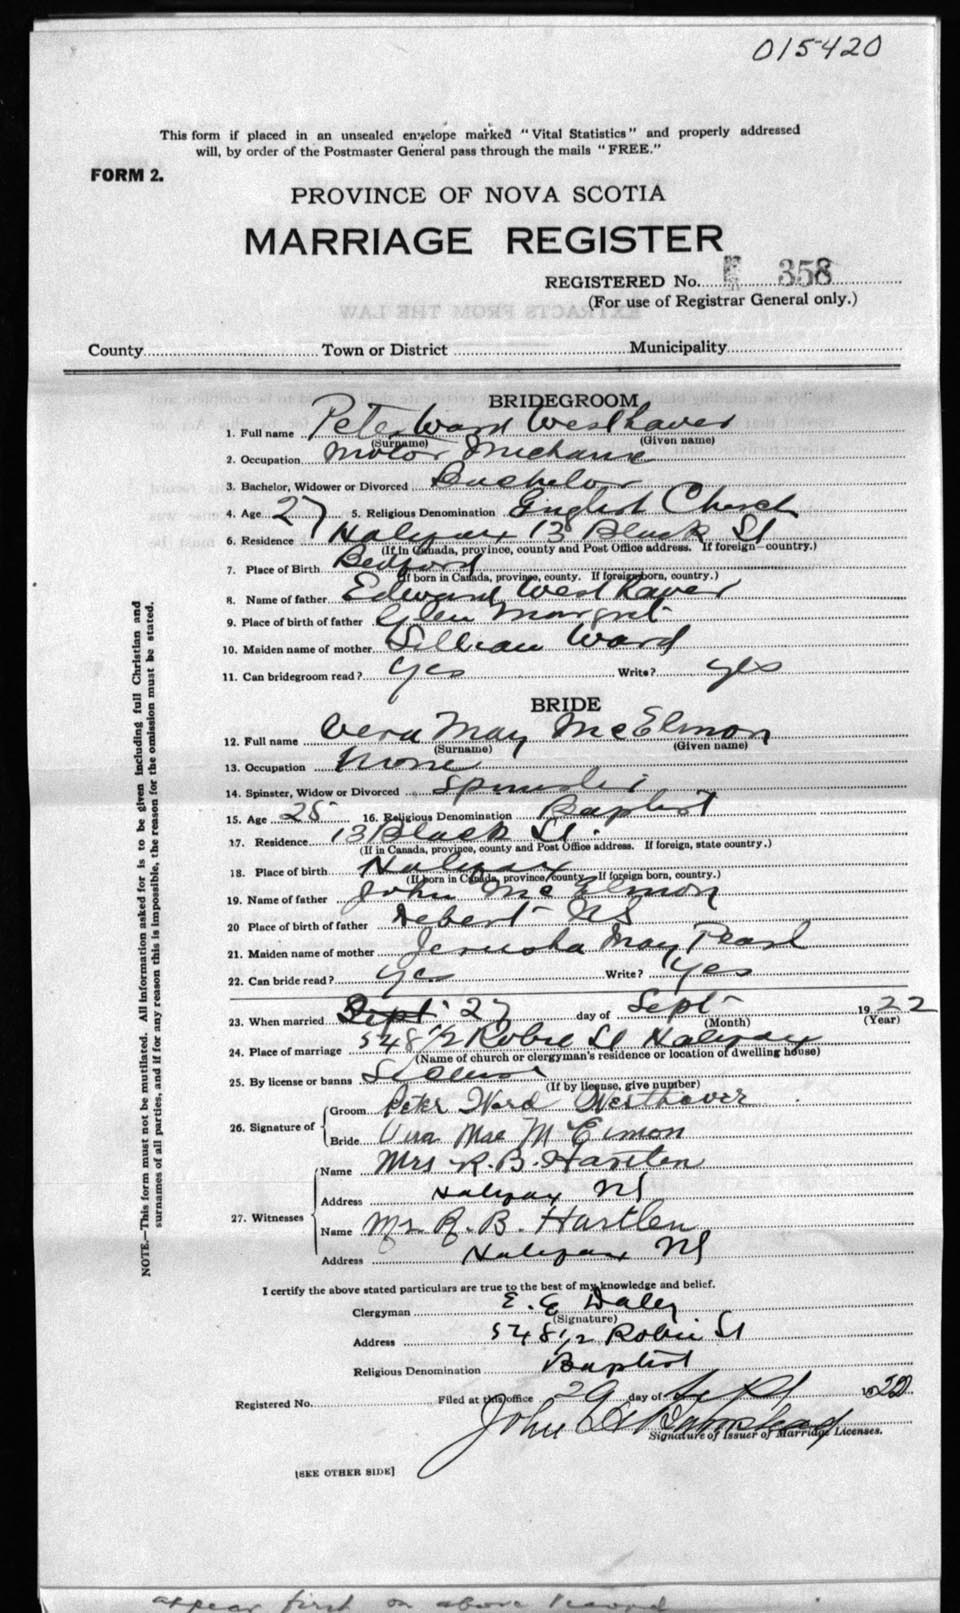 015420
This form if placed in an unsealed envelope marked "Vital Statistics" and properly addressed
will, by order of the Postmaster General pass through the mails "FREE."
FORM 2.
PROVINCE OF NOVA SCOTIA
MARRIAGE REGISTER
REGISTERED No. 358
(For use of Registrar General only.)
EXTRACTS FROM THE LAW
County Town or District Municipality
BRIDEGROOM
1. Full name Peter Ward Westhaver
(Surname) (Given name)
2. Occupation Motor Mechanic
3. Bachelor, Widower or Divorced Bachelor
4. Age 27 5. Religious Denomination English Church
6. Residence Halifax 13 Black St
(If in Canada, province, county and Post Office address. If foreign—country.)
7. Place of Birth Bedford
(If born in Canada, province, county. If foreign born, country.)
8. Name of father Edward Westhaver
9. Place of birth of father Glen Margret
10. Maiden name of mother Lillian Ward
11. Can bridegroom read? yes Write? yes
BRIDE
12. Full name Vera May McElmon
(Surname) (Given name)
13. Occupation None
14. Spinster, Widow or Divorced Spinster
15. Age 25 16. Religious Denomination Baptist
17. Residence 13 Black St.
(If in Canada, province, county and Post Office address. If foreign, state country.)
18. Place of birth Halifax
(If born in Canada, province, county. If foreign born, country.)
19. Name of father John McElmon
20 Place of birth of father Debert NS
21. Maiden name of mother Jerusha May Pearl
22. Can bride read? yes Write? yes
23. When married Sept 27 day of Sept 1922
(Month) (Year)
24. Place of marriage 548 1/2 Robie St Halifax
(Name of church or clergyman's residence or location of dwelling house)
25. By license or banns License
(If by license, give number)
26. Signature of
Groom Peter Ward Westhaver
Bride Vera Mae McElmon
27. Witnesses
Name Mrs R. B. Hartlen
Address Halifax NS
Name Mr R. B. Hartlen
Address Halifax NS
I certify the above stated particulars are true to the best of my knowledge and belief.
Clergyman E. E. Daley
(Signature)
Address 548 1/2 Robie St
Religious Denomination Baptist
Registered No. Filed at this office 29 day of Sept 1922
John
Signature of Issuer of Marriage Licenses.
[SEE OTHER SIDE]
NOTE.—This form must not be mutilated. All information asked for is to be given including full Christian and
surnames of all parties, and if for any reason this is impossible, the reason for the omission must be stated.
appear first on above record